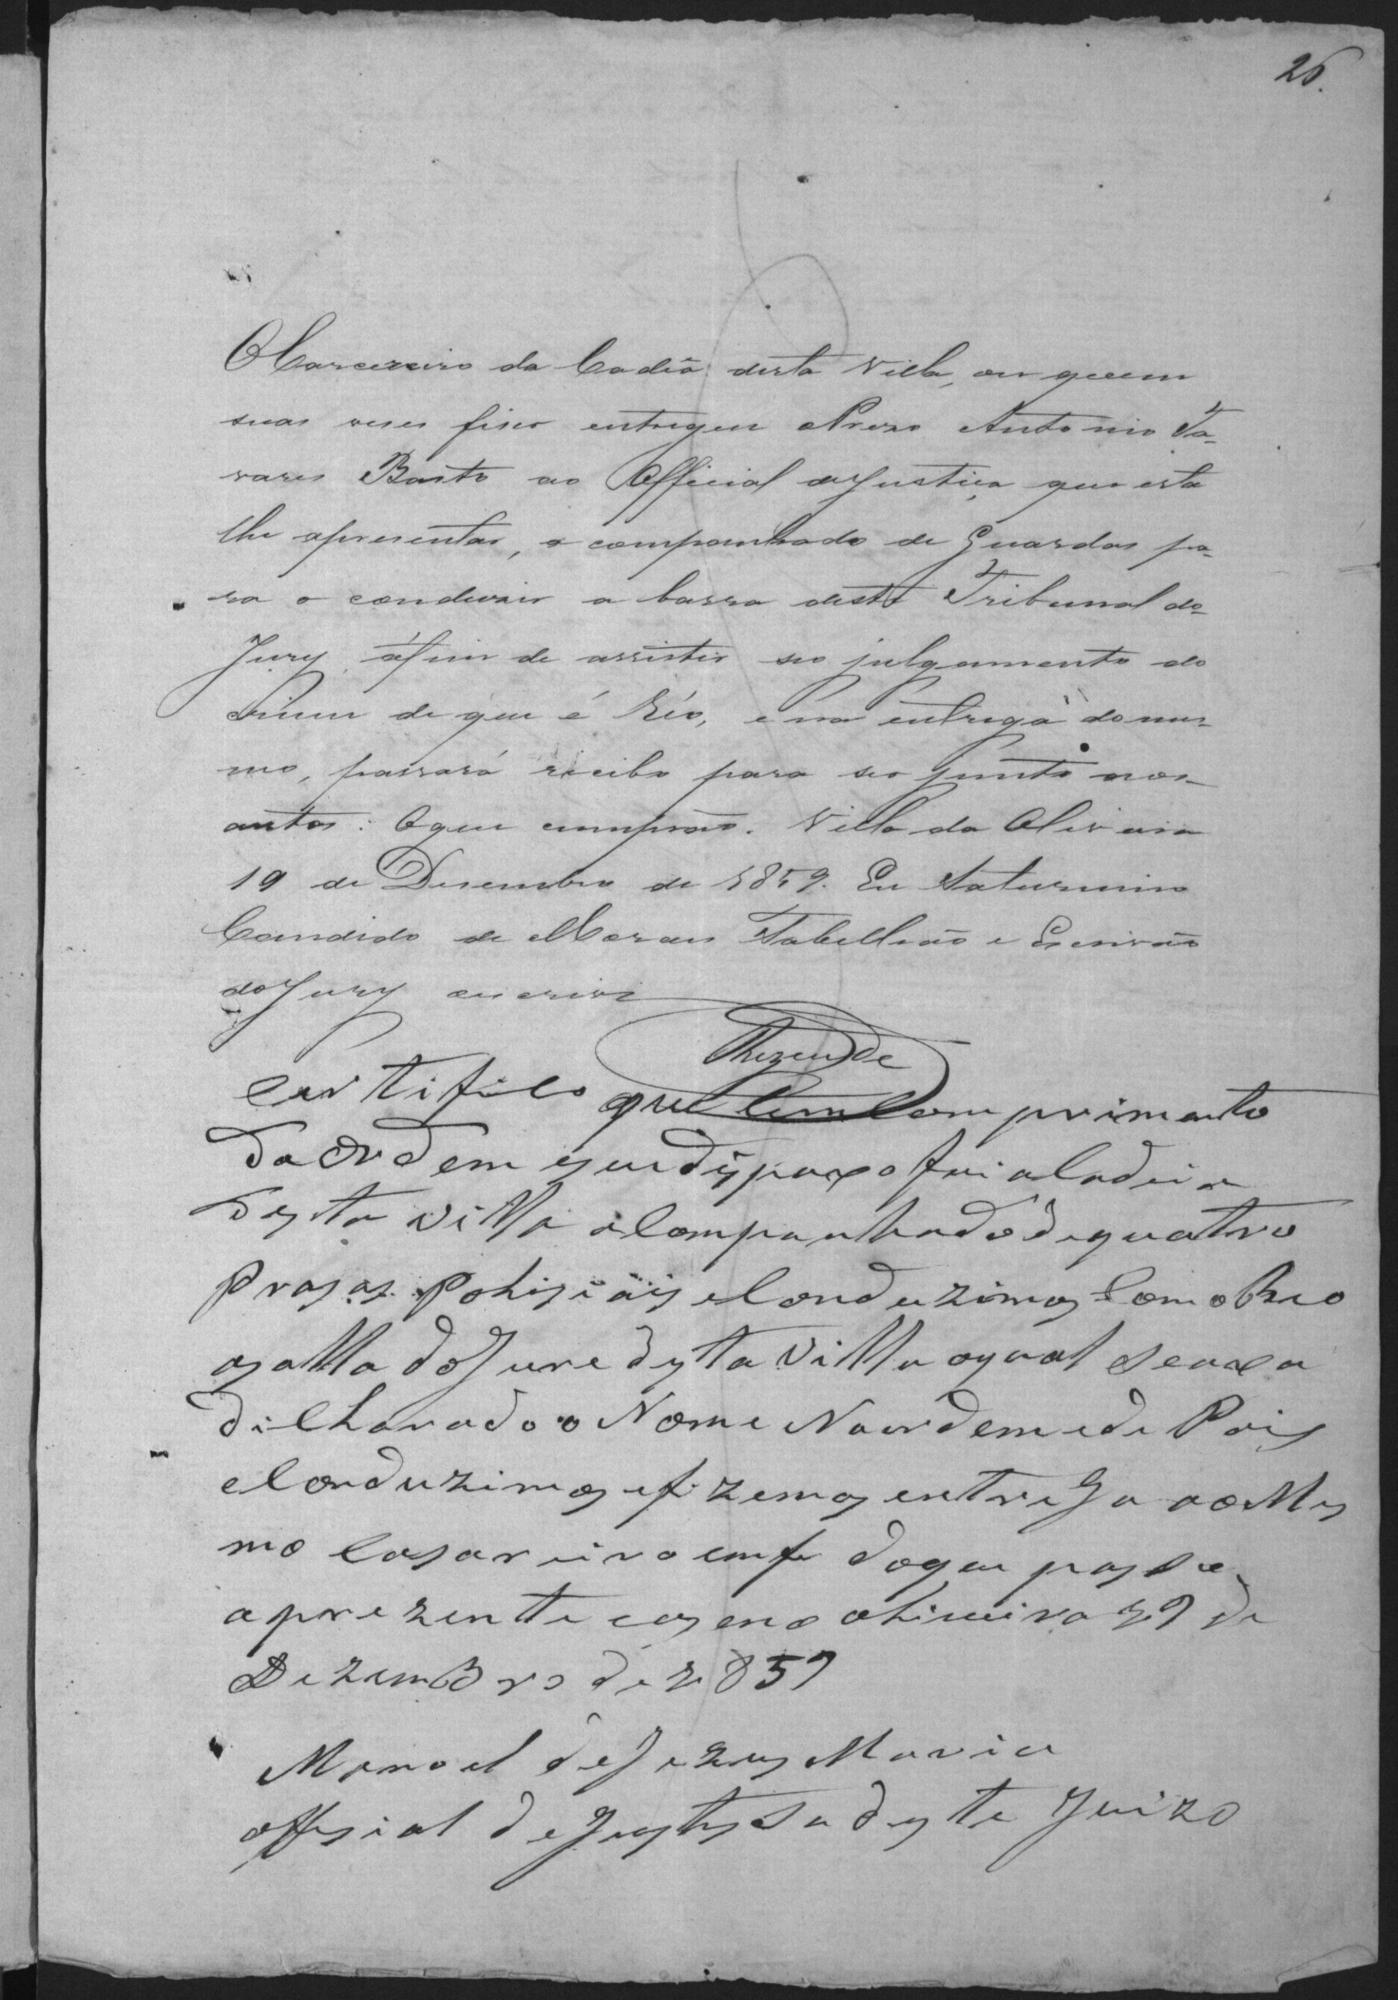 26.
O Carcereiro da Cadêa desta Villa, ou quem
suas veses fiser entregue o Preso Antonio Ta-
vares Basto ao Official de Justiça que esta
lhe apresentar, acompanhado de Guardas pa-
ra o conduzir a barra deste Tribunal do
Jury, áfim de assistir seo julgamento do
crime de que é Réo, e na entrega do mes-
mo, passará recibo para ser junto aos
autos: O que cumprão. Villa da Oliveira
19 de Desembro de 1859. Eu Saturnino
Candido de Moraes Tabellião e Escrivão
do Jury escrivi
Rezende
certifico que em comprimento
da ordem que dispaxo fui a Cadeia
desta villa acompanhado de quatro
prasas polisiais e conduzimos com o Reo
a salla do Jure desta villa o qual se axa
dicharado o Nome Na ordem e de Pois
conduzimos e fizemos entrega ao Mes
mo casareiro em fe do que passe
a prezente oliveira 19 de
Dezembro de 1859
Manoel de Jezus Maria
offisial de Justisa deste Juizo